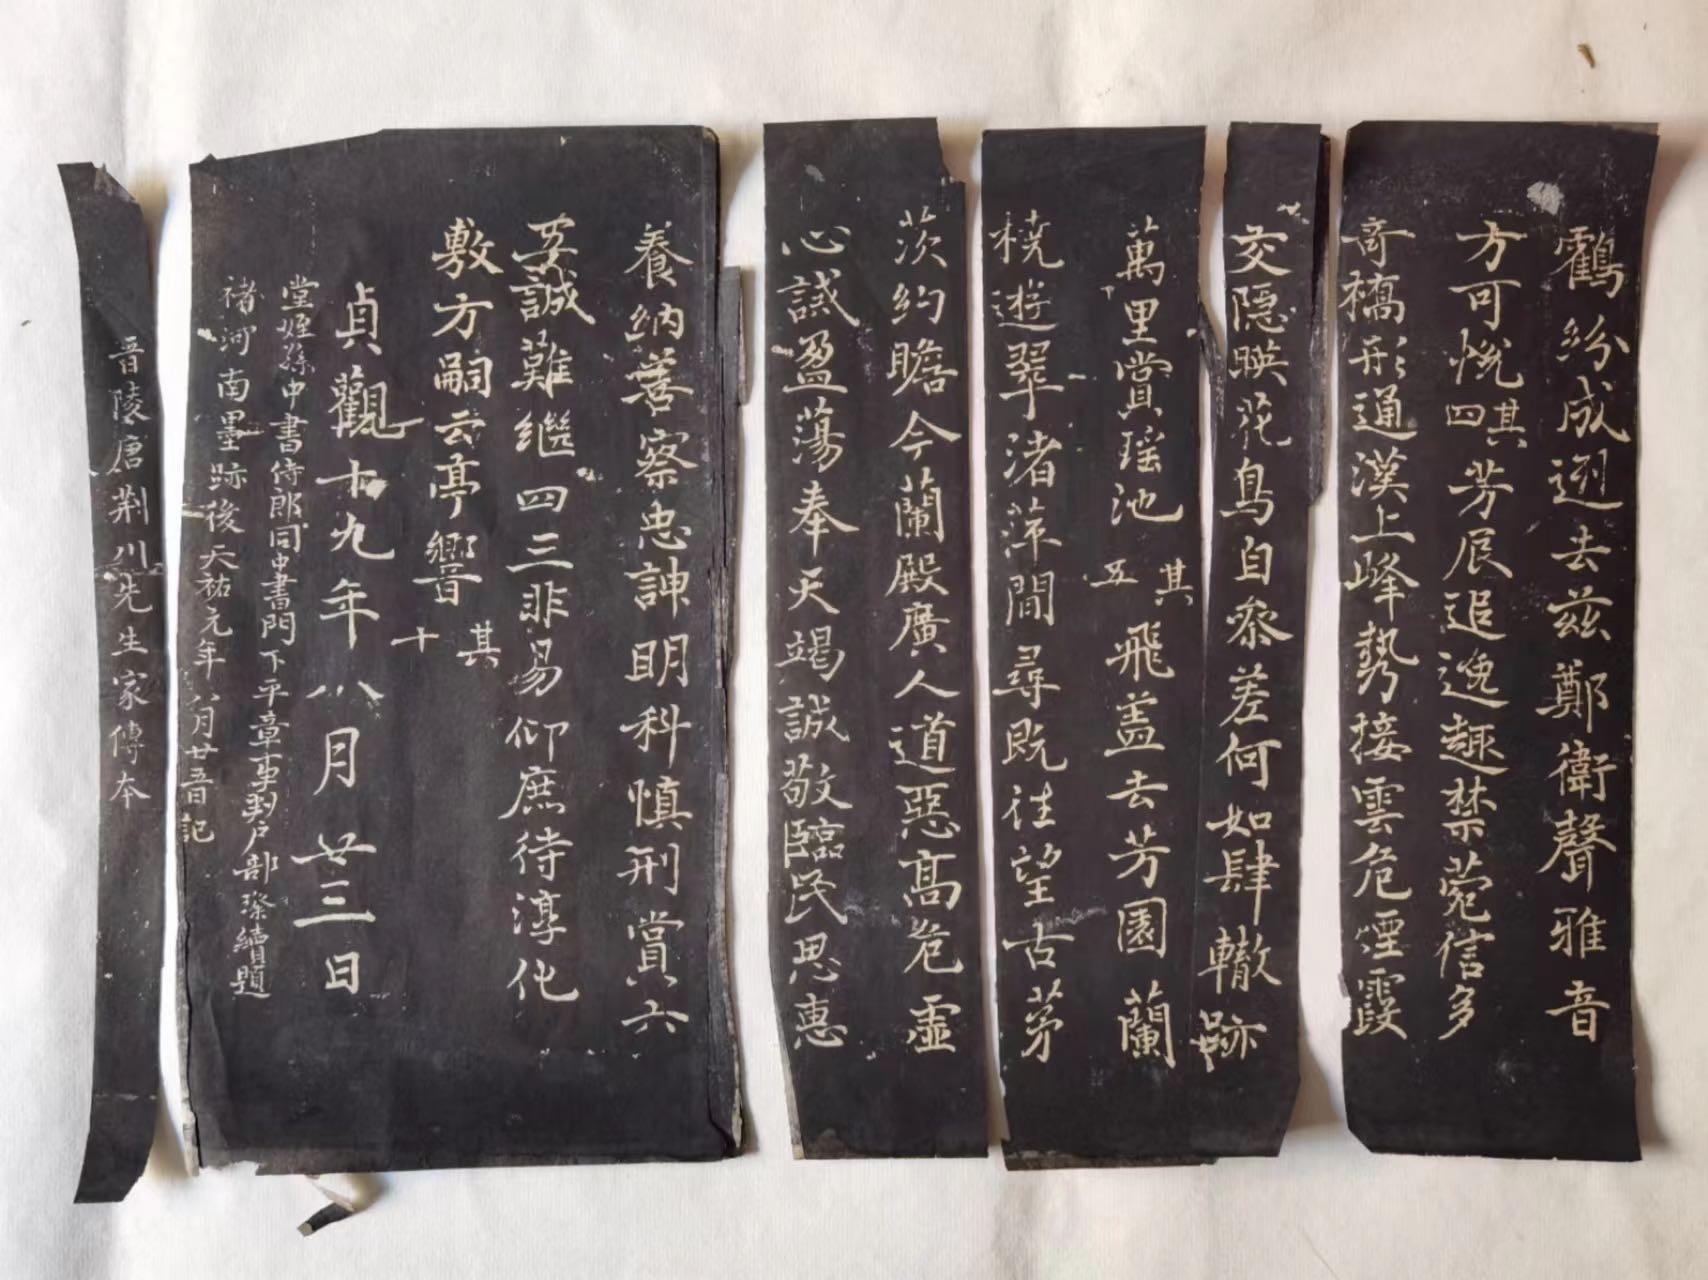 鸖紛成迾去茲鄭衛聲雅音
方可悅其四芳辰追逸趣禁菀信多
奇橋形通漢上峰勢接雲危煙霞
交隱暎花鳥自叅差何如肆轍跡
萬里賞瑤池其五飛盖去芳園蘭
橈遊翠渚萍間尋既往望古茅
茨約瞻今蘭殿廣人道惡高危虛
心誡盈蕩奉天竭誠敬臨民思惠
養納善察忠訷明科慎刑賞六
五誠難繼四三非易仰庶待淳化
敷方嗣云亭響其十
貞觀十九年八月廿三日
堂姪孫中書侍郎同中書門下平章事判户部璨續題
褚河南墨跡後天祐元年八月廿五日記
晉陵唐荊川先生家傳本